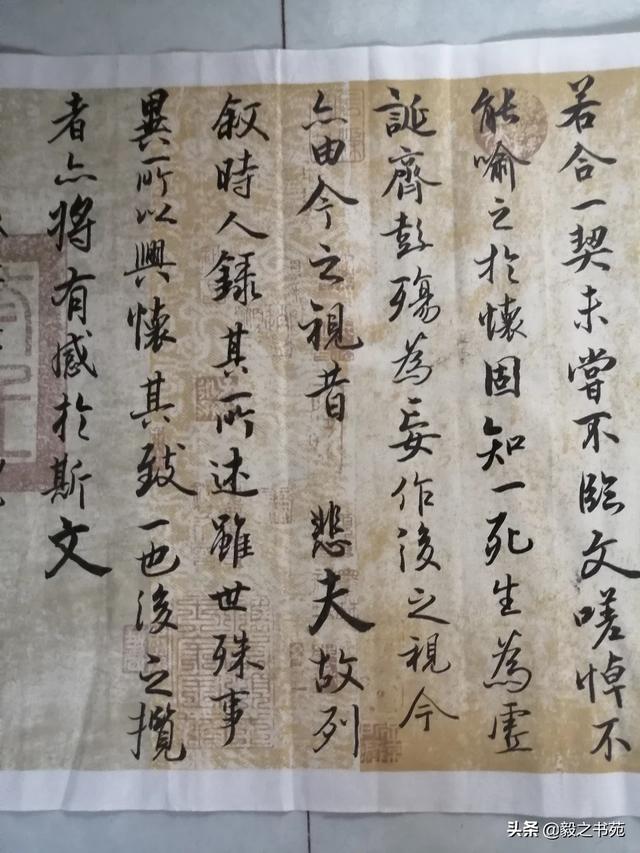 若合一契未嘗不臨文嗟悼不
能喻之於懷固知一死生為虛
誕齊彭殤為妄作後之視今
亦由今之視昔 悲夫故列
叙時人錄其所述雖世殊事
異所以興懷其致一也後之攬
者亦將有感於斯文
头条 @毅之书苑